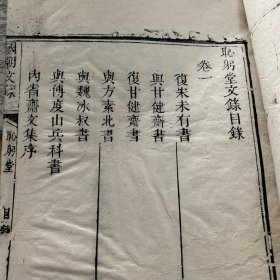 恥躬堂文錄目錄
卷一
復朱未有書
與甘健齋書
復甘健齋書
與方素北書
與魏冰叔書
與傅度山兵科書
內省齋文集序
國朝文錄
恥躬堂
目錄